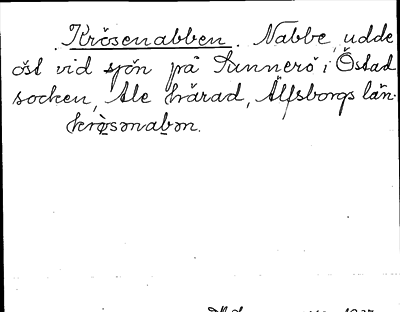 Krösenabben. Nabbe, udde
öst vid sjön på Sunnerö i Östad
socken, Ale härad, Älfsborgs län.
krösənabən.